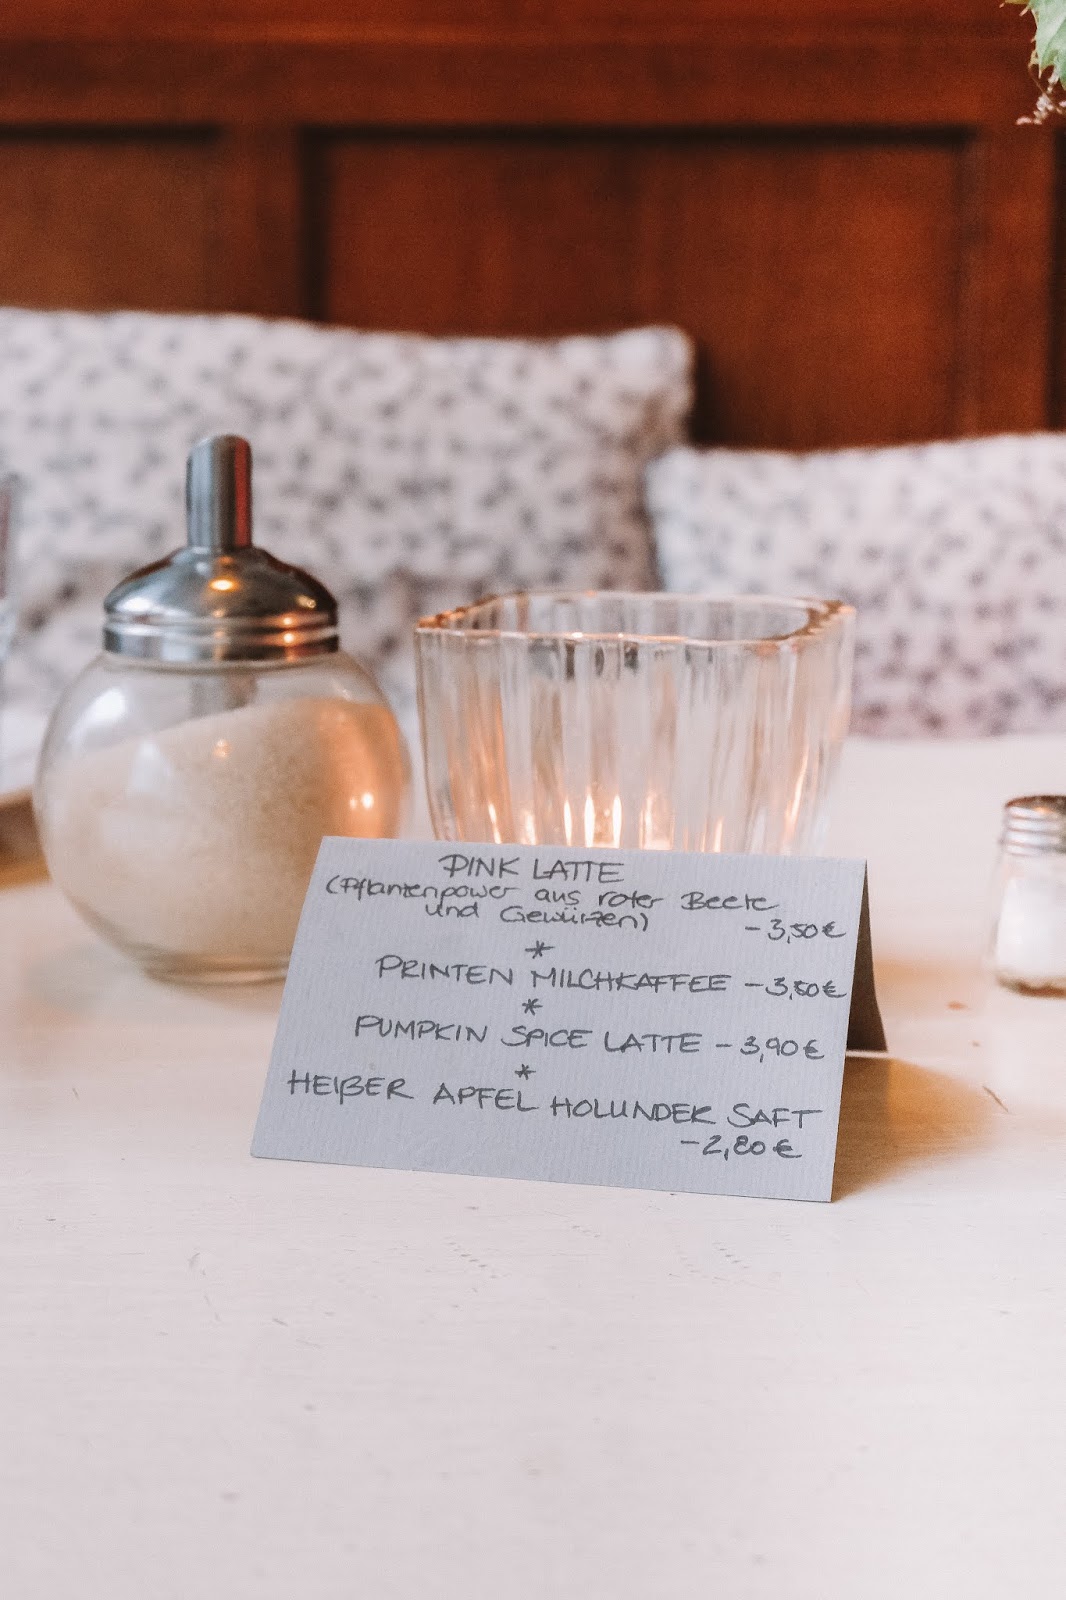 PINK LATTE
(Pflanzenpower aus roter Beete
und Gewürzen) - 3,50 €
*
PRINTEN MILCHKAFFEE - 3,80 €
*
PUMPKIN SPICE LATTE - 3,90 €
*
HEIßER APFEL HOLUNDER SAFT
- 2,80 €